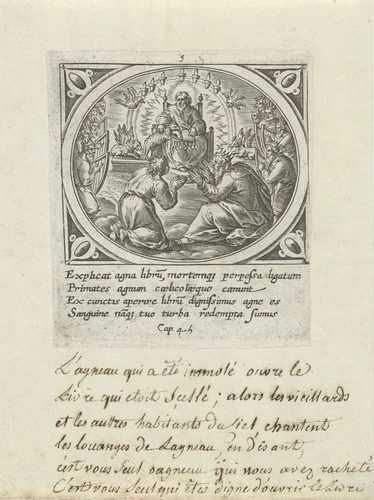 3
Explicat agna librū, mortemq₃ perpessa ligatum
Primates agnum cœlicolæque canunt
Ex cunctis aperire librū dignissimus agne es
Sanguine nāq₃ tuo turba redempta sumus
Cap. 4. 5
L'agneau qui a été immolé ouvre le
Livre qui étoit Scellé; alors les vieillards
et les autres habitants du Ciel, chantent
les louanges de L'agneau, en disant,
c'est vous Seul, o agneau qui nous avez racheté
C'est vous Seul qui êtes digne d'ouvrir le Livre